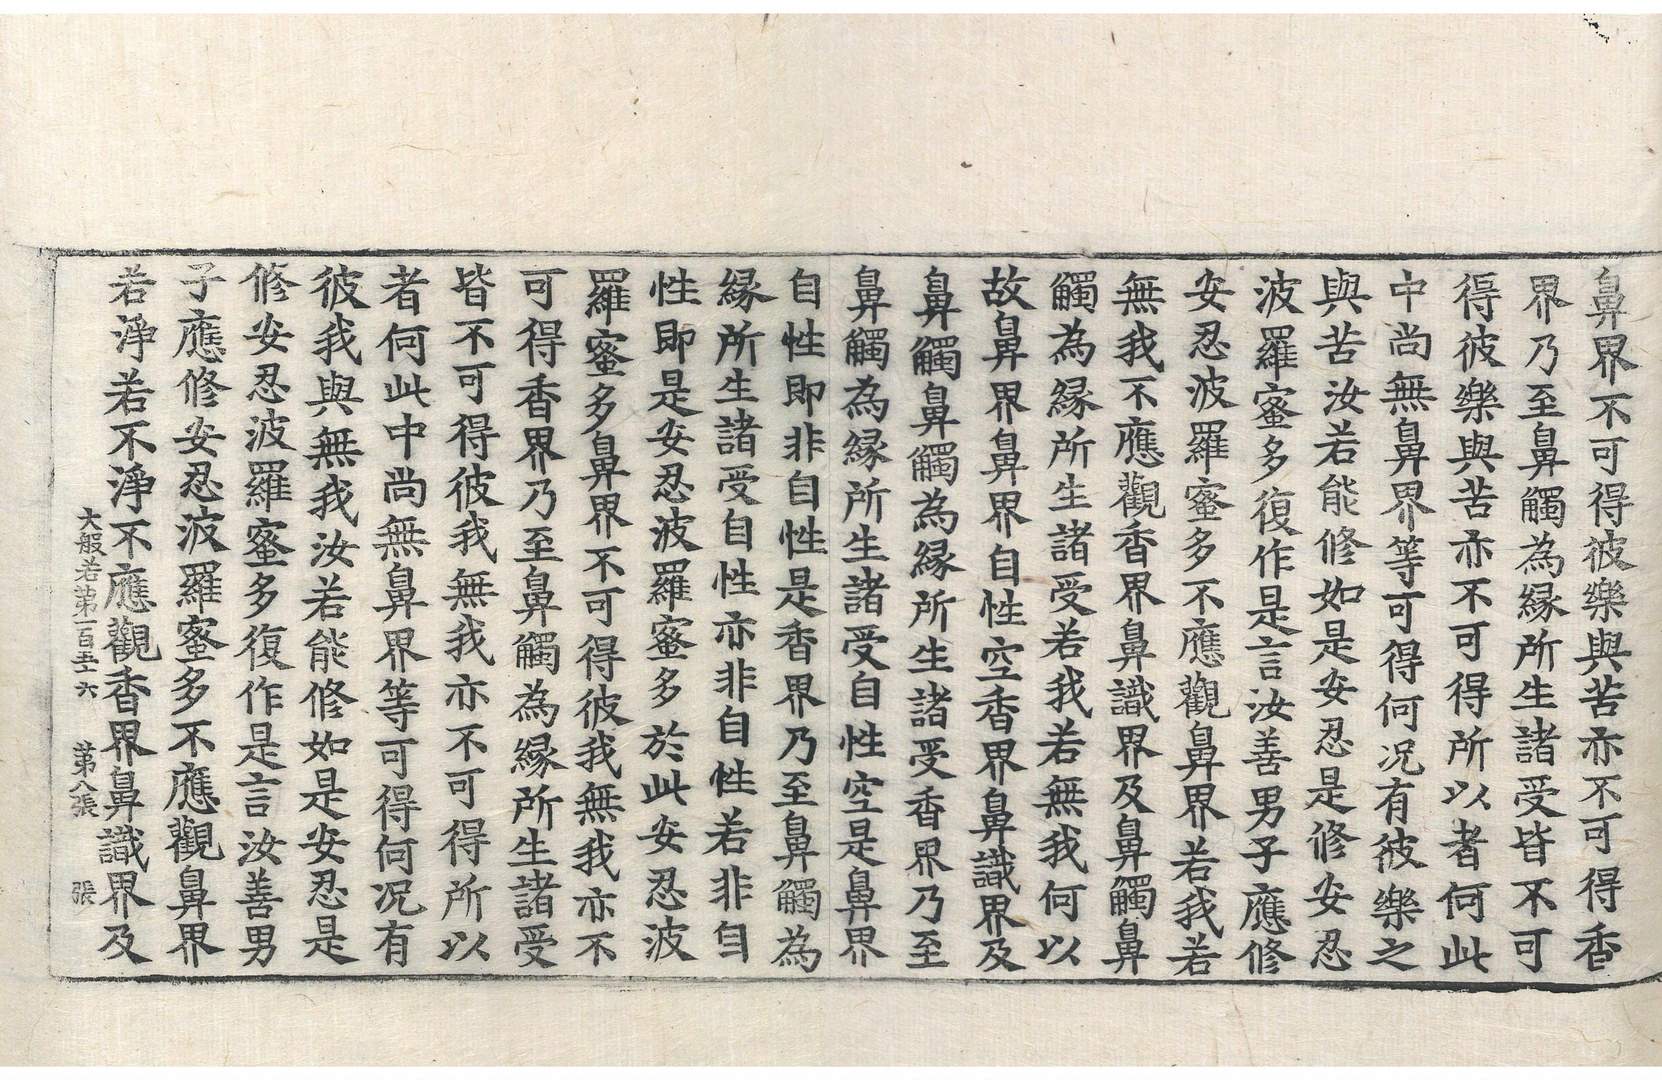 鼻界不可得彼樂與苦亦不可得香
界乃至鼻觸為縁所生諸受皆不可
得彼樂與苦亦不可得所以者何此
中尚無鼻界等可得何况有彼樂之
與苦汝若能修如是安忍是修安忍
波羅蜜多復作是言汝善男子應修
安忍波羅蜜多不應觀鼻界若我若
無我不應觀香界鼻識界及鼻觸鼻
觸為縁所生諸受若我若無我何以
故鼻界鼻界自性空香界鼻識界及
鼻觸鼻觸為縁所生諸受香界乃至
鼻觸為縁所生諸受自性空是鼻界
自性即非自性是香界乃至鼻觸為
縁所生諸受自性亦非自性若非自
性即是安忍波羅蜜多於此安忍波
羅蜜多鼻界不可得彼我無我亦不
可得香界乃至鼻觸為縁所生諸受
皆不可得彼我無我亦不可得所以
者何此中尚無鼻界等可得何况有
彼我與無我汝若能修如是安忍是
修安忍波羅蜜多復作是言汝善男
子應修安忍波羅蜜多不應觀鼻界
若淨若不淨不應觀香界鼻識界及
大般若第一百五十六 第八張 張